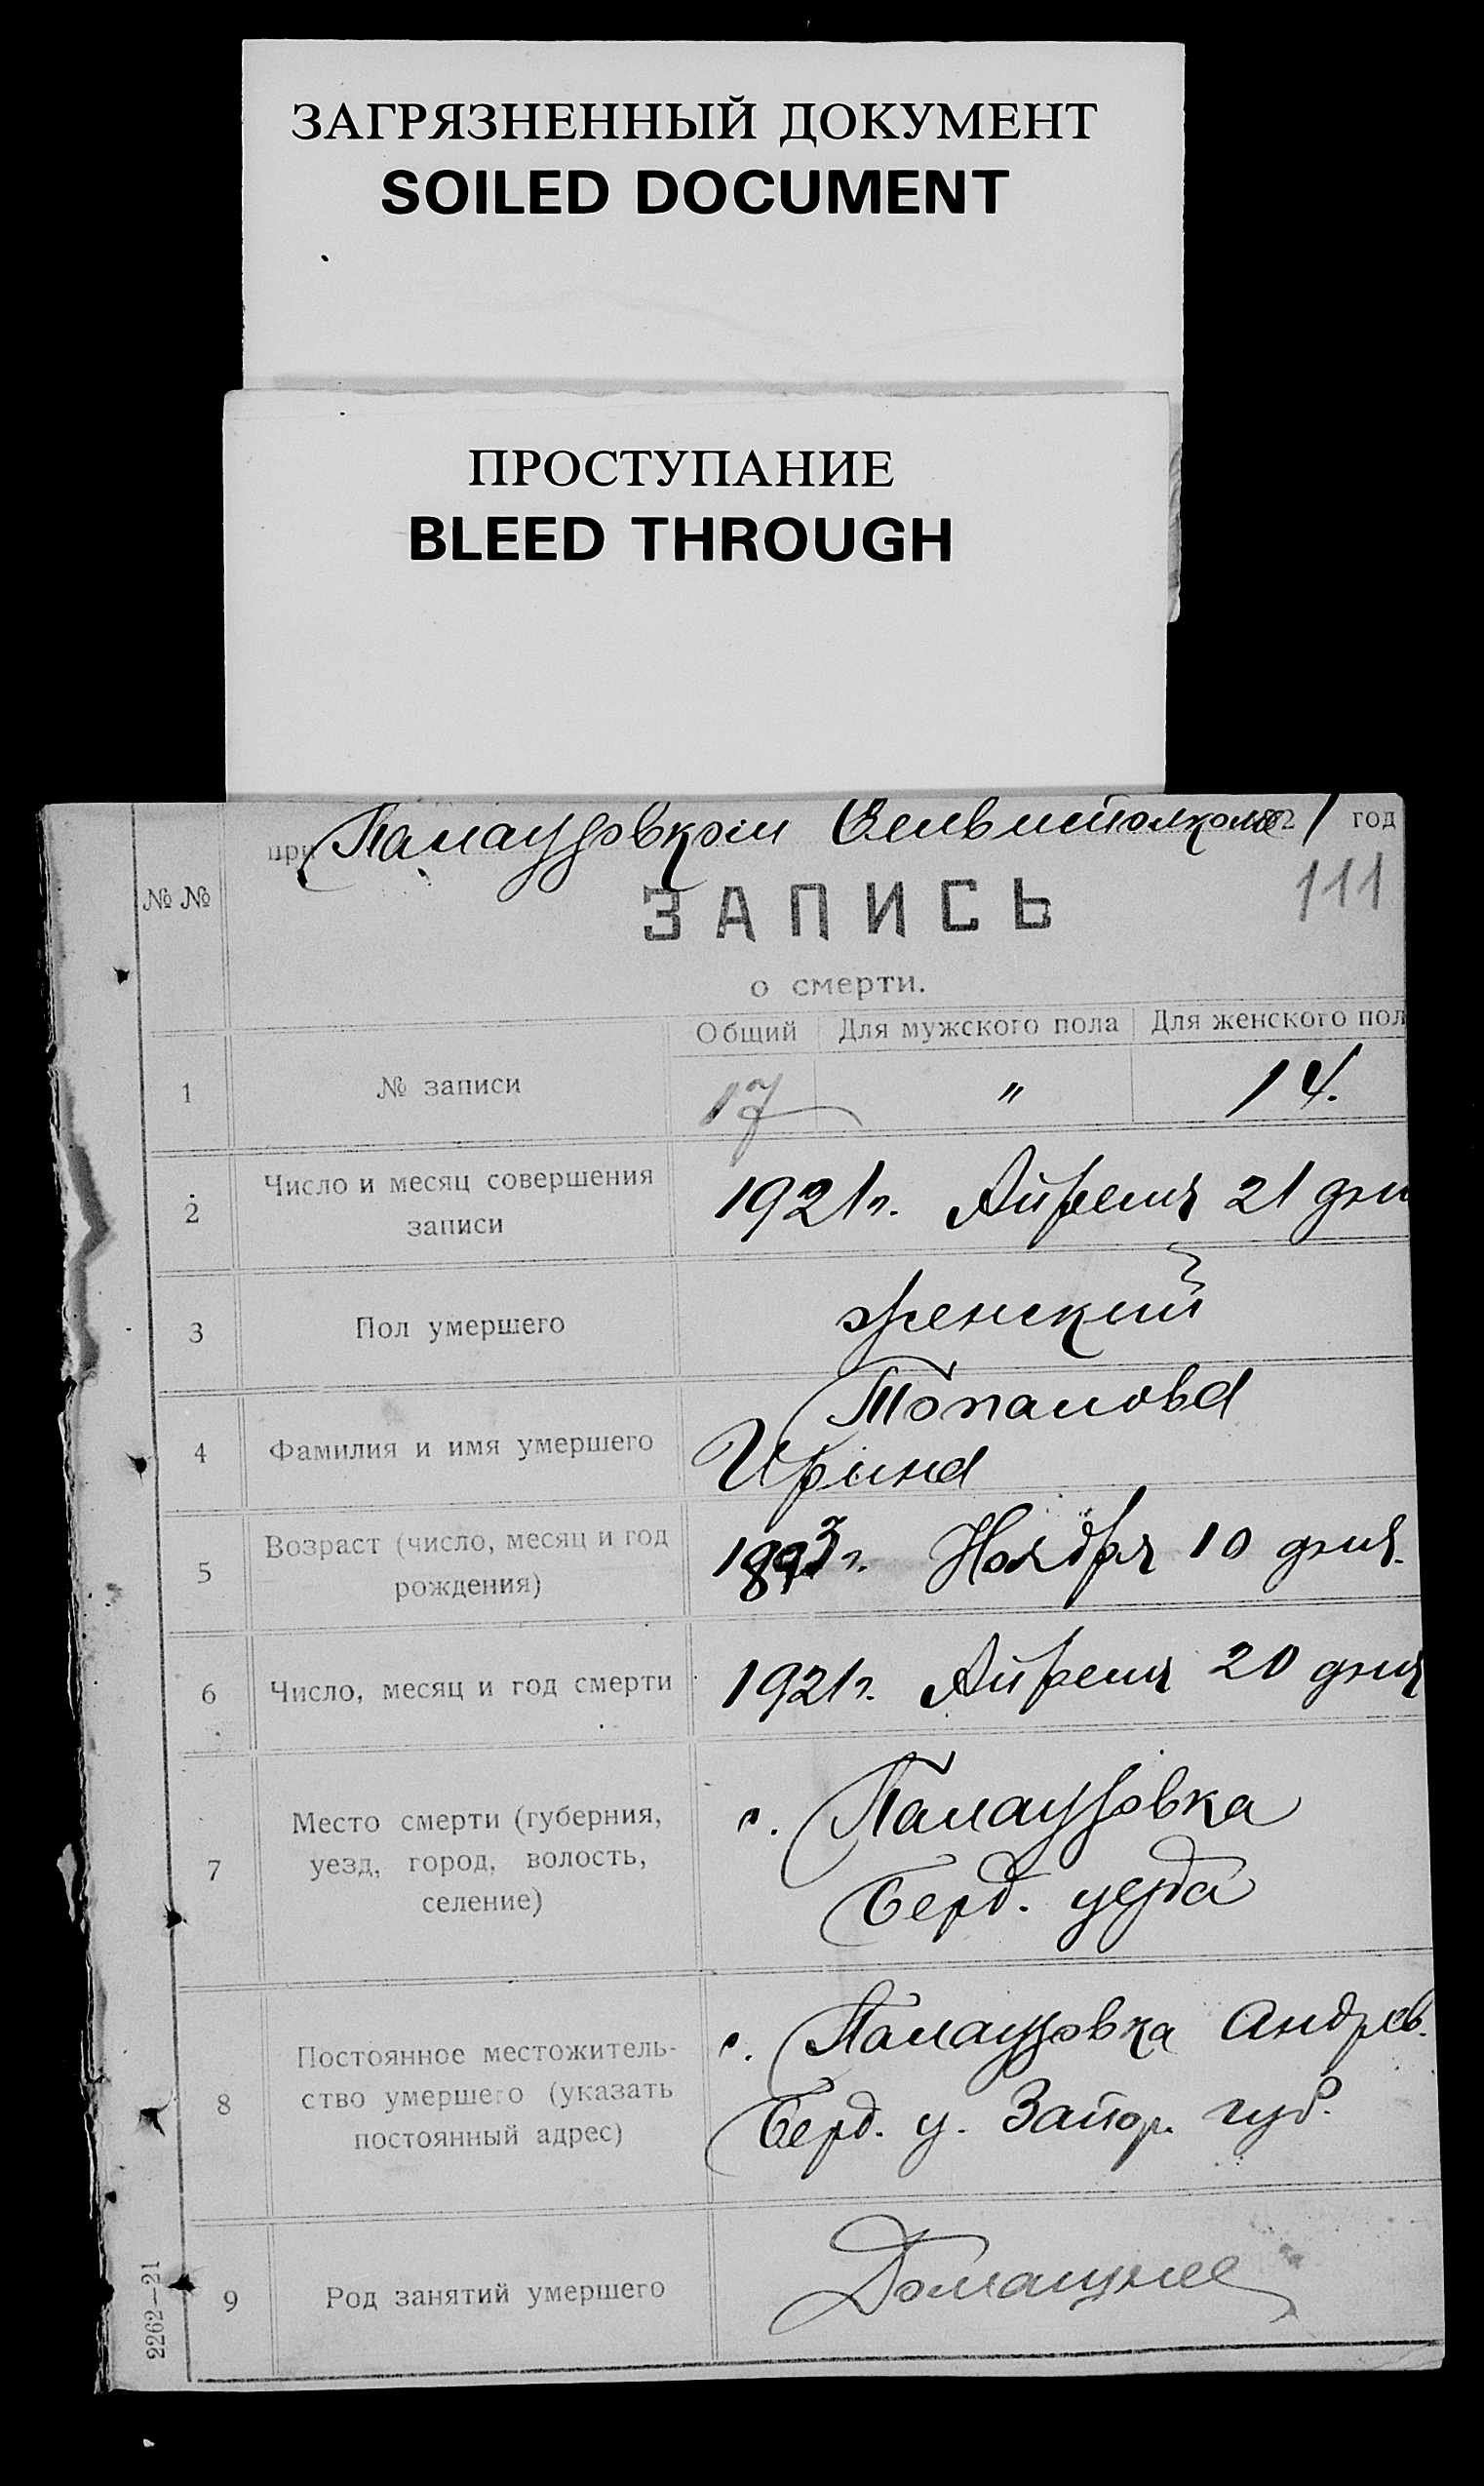 ЗАГРЯЗНЕННЫЙ ДОКУМЕНТ
SOILED DOCUMENT
ПРОСТУПАНИЕ
BLEED THROUGH
при Палаузовком 2 1 год
111
№ №
ЗАПИСЬ
о смерти.
Общий Для мужского пола Для женского пол
1 № записи 17 " 14.
2 Число и месяц совершения
записи
1921 г. Апреля 21 дня
3 Пол умершего женский
4 Фамилия и имя умершего
Топалова
Ирина
5 Возраст (число, месяц и год
рождения)
1893 г. Ноября 10 дня.
6 Число, месяц и год смерти 1921 г. Апреля 20 дня
7 Место смерти (губерния,
уезд, город, волость,
селение)
с. Палаузовка
Берд. уезда
8 Постоянное местожитель-
ство умершего (указать
постоянный адрес)
с. Палаузовка Андрев.
Берд. у. Запор. губ.
9 Род занятий умершего Домашнее
2262—21